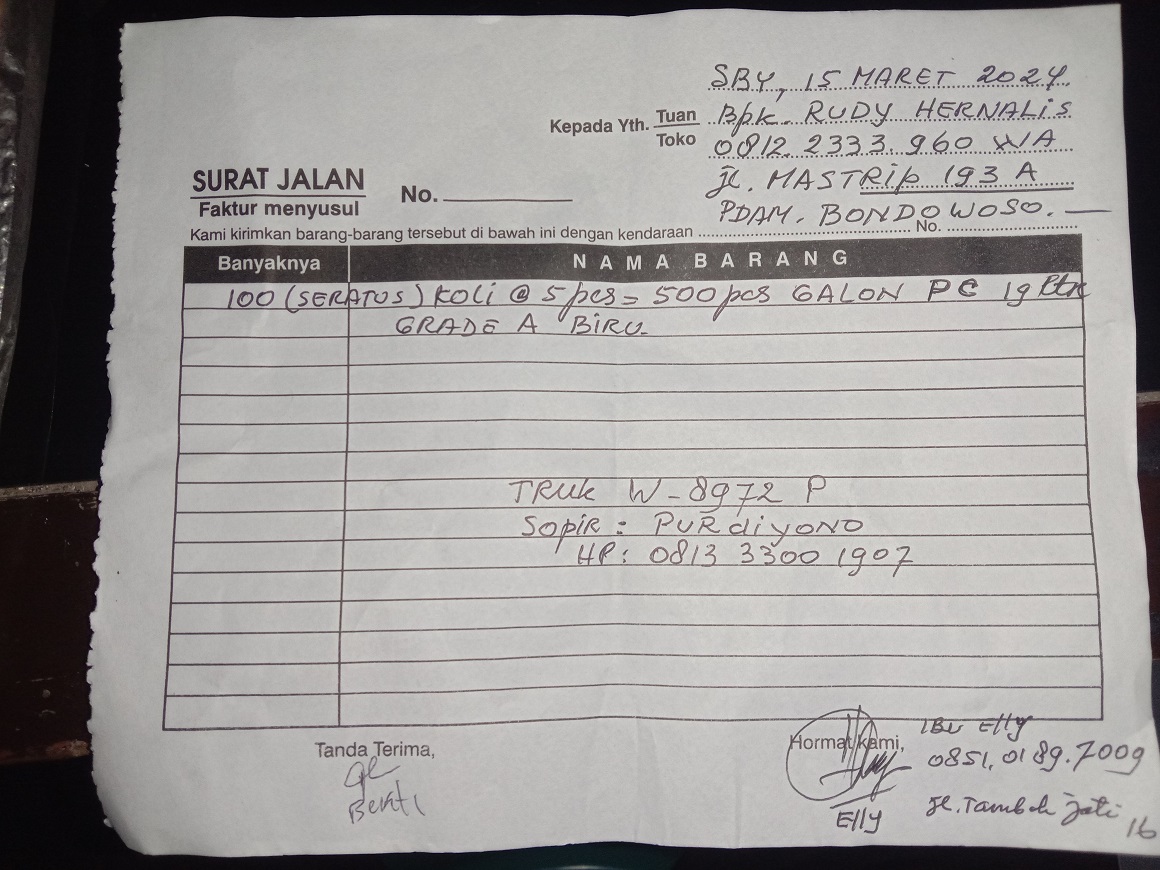 SBY, 15 MARET 2024
Kepada Yth. Tuan Toko
Bpk. RUDY HERNALIS
0812 2333 960 WA
jl. MASTRip 193 A
PDAM. BONDOWOSO.
SURAT JALAN
Faktur menyusul
No.
Kami kirimkan barang-barang tersebut di bawah ini dengan kendaraan ........ No. ........
Banyaknya NAMA BARANG
100 (SERATUS) KOLI @ 5 pcs = 500 pcs GALON PC 19
GRADE A BIRU
TRUK W-8972 P
SopiR : PURdiyONO
HP: 0813 3300 1907
Tanda Terima,
Hormat kami,
Elly
IBU Elly
0851.0189.7009
Jl. Tambak jati 16